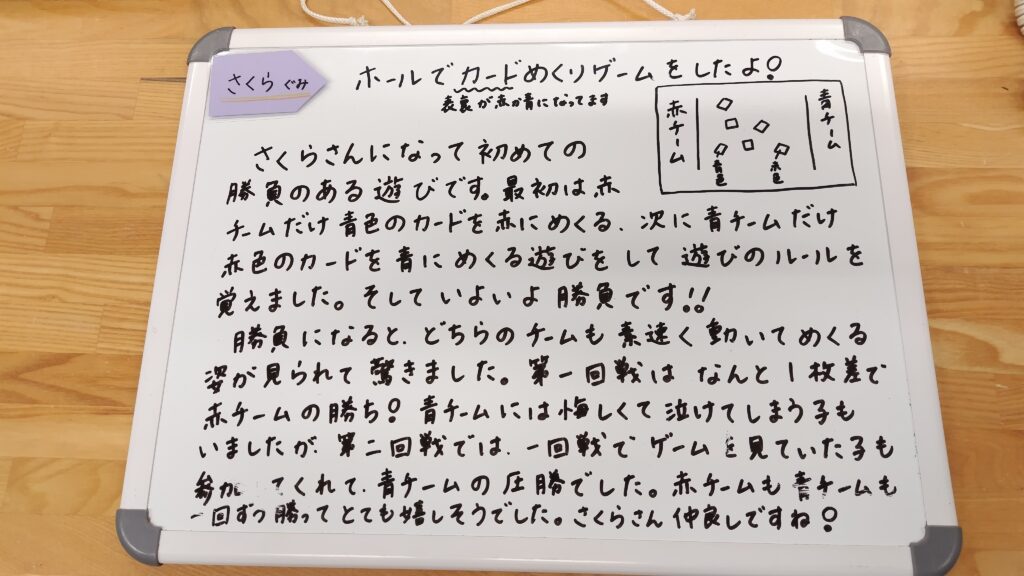 さくらぐみ
ホールでカードめくりゲームをしたよ！
表裏が赤か青になってます
赤チーム
青チーム
青色
赤色
さくらさんになって初めての
勝負のある遊びです。最初は赤
チームだけ青色のカードを赤にめくる、次に青チームだけ
赤色のカードを青にめくる遊びをして遊びのルールを
覚えました。そしていよいよ勝負です!!
勝負になると、どちらのチームも素速く動いてめくる
姿が見られて驚きました。第一回戦はなんと1枚差で
赤チームの勝ち！青チームには悔しくて泣けてしまう子も
いましたが、第二回戦では、一回戦でゲームを見ていた子も
参加 てくれて、青チームの圧勝でした。赤チームも青チームも
一回ずつ勝ってとても嬉しそうでした。さくらさん仲良しですね！